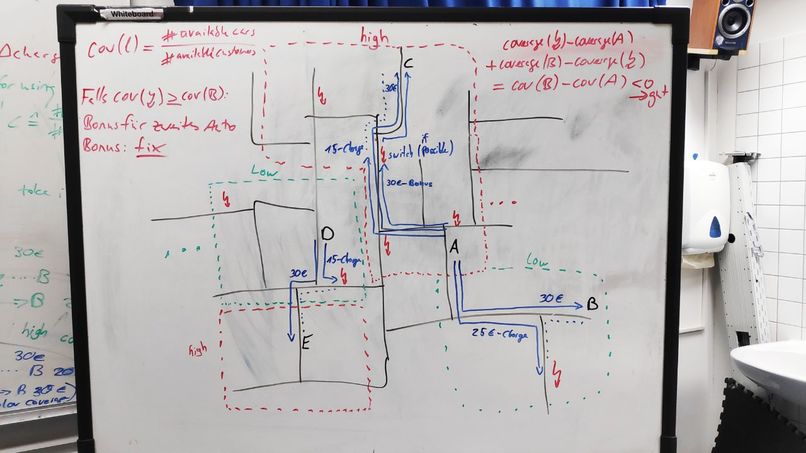 Whiteboard
cov(l) = #available cars
#available customers
Falls cov(y) ≥ cov(B):
Bonus für zweites Auto
Bonus: fix
high
coverage(y) - coverage(A)
+ coverage(B) - coverage(y)
= cov(B) - cov(A) < 0
→ gut
C
30€
15-Charge
switch (if possible)
30€-Bonus
Low
D
15-Charge
30€
E
high
A
Low
30€
B
25€-Charge
Δcharg
for using
take i
30€
B
→ B
high co
30€
B 20
→ B 30€)
low coverage)